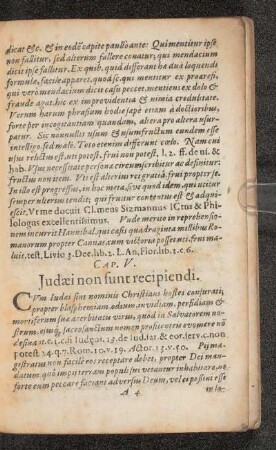 dicat &c. & in eodē capite paulò ante: Qui mentitur ipse
non fallitur, sed alterum fallere conatur, qui mendacium
dicit ipse fallitur. Ex quib. quid differant ha duæ loquendi
formulæ, facile apparet, quòd sc. qui mentitur ex proæresi,
qui verò mendacium dicit casu peccet, mentiens ex dolo &
fraude agat, hic ex imprudentia & nimia credulitate.
Verum harum phrasium hodie sæpè etiam à doctioribus
forte per inconstantiam quandam, altera pro altera usur-
patur. Sic nonnulli usum & usumfructum eundem esse
intelligo, sed malè. Toto etenim differunt cœlo. Nam cui
usus relictus est, uti potest, frui non potest, l. 2. ff. de us. &
hab. Usus necessitate persona circumscribitur ac definitur:
fructus non item. Uti est alterius re
In illo est progressio, in hac verò meta. Sunt quidem utuntur
semper ulterius tendit; qui fruitur contentus est & adqui-
escit, Ut me docuit Clemens Sizmannus ICtus & Phi-
lologus excellentissimus. Vnde meritò in reprehensio-
nem incurrit Hannibal, qui cæsis quadraginta millibus Ro-
manorum propter Cannas, cum victoria posset uti, frui ma-
luit, test. Livio 3. Dec. lib. 2. L. An. Flor. lib. 2. c. 6.
CAP. V.
Judæi non sunt recipiendi.
CVm Iudæi sint nominis Christiani hostes conjurati,
propter blasphemiam, odium, invidiam, perfidiam &
mortiferum suæ acerbitatis virus, quod in Salvatorem no-
strum, ejusq; sacrosanctum nomen proficere evomere nō
desinūt
potest 14. q. 7. Rom. 10. v. 19. Actor. 13. v. 50. Pij ma-
gistratus non facilè eos receptare debēt, propter Dei man-
datum, quò impij terram populi sui vetantur inhabitare, ne
forte eum peccare faciant adversus Deum, vel ei possint esse
A 4